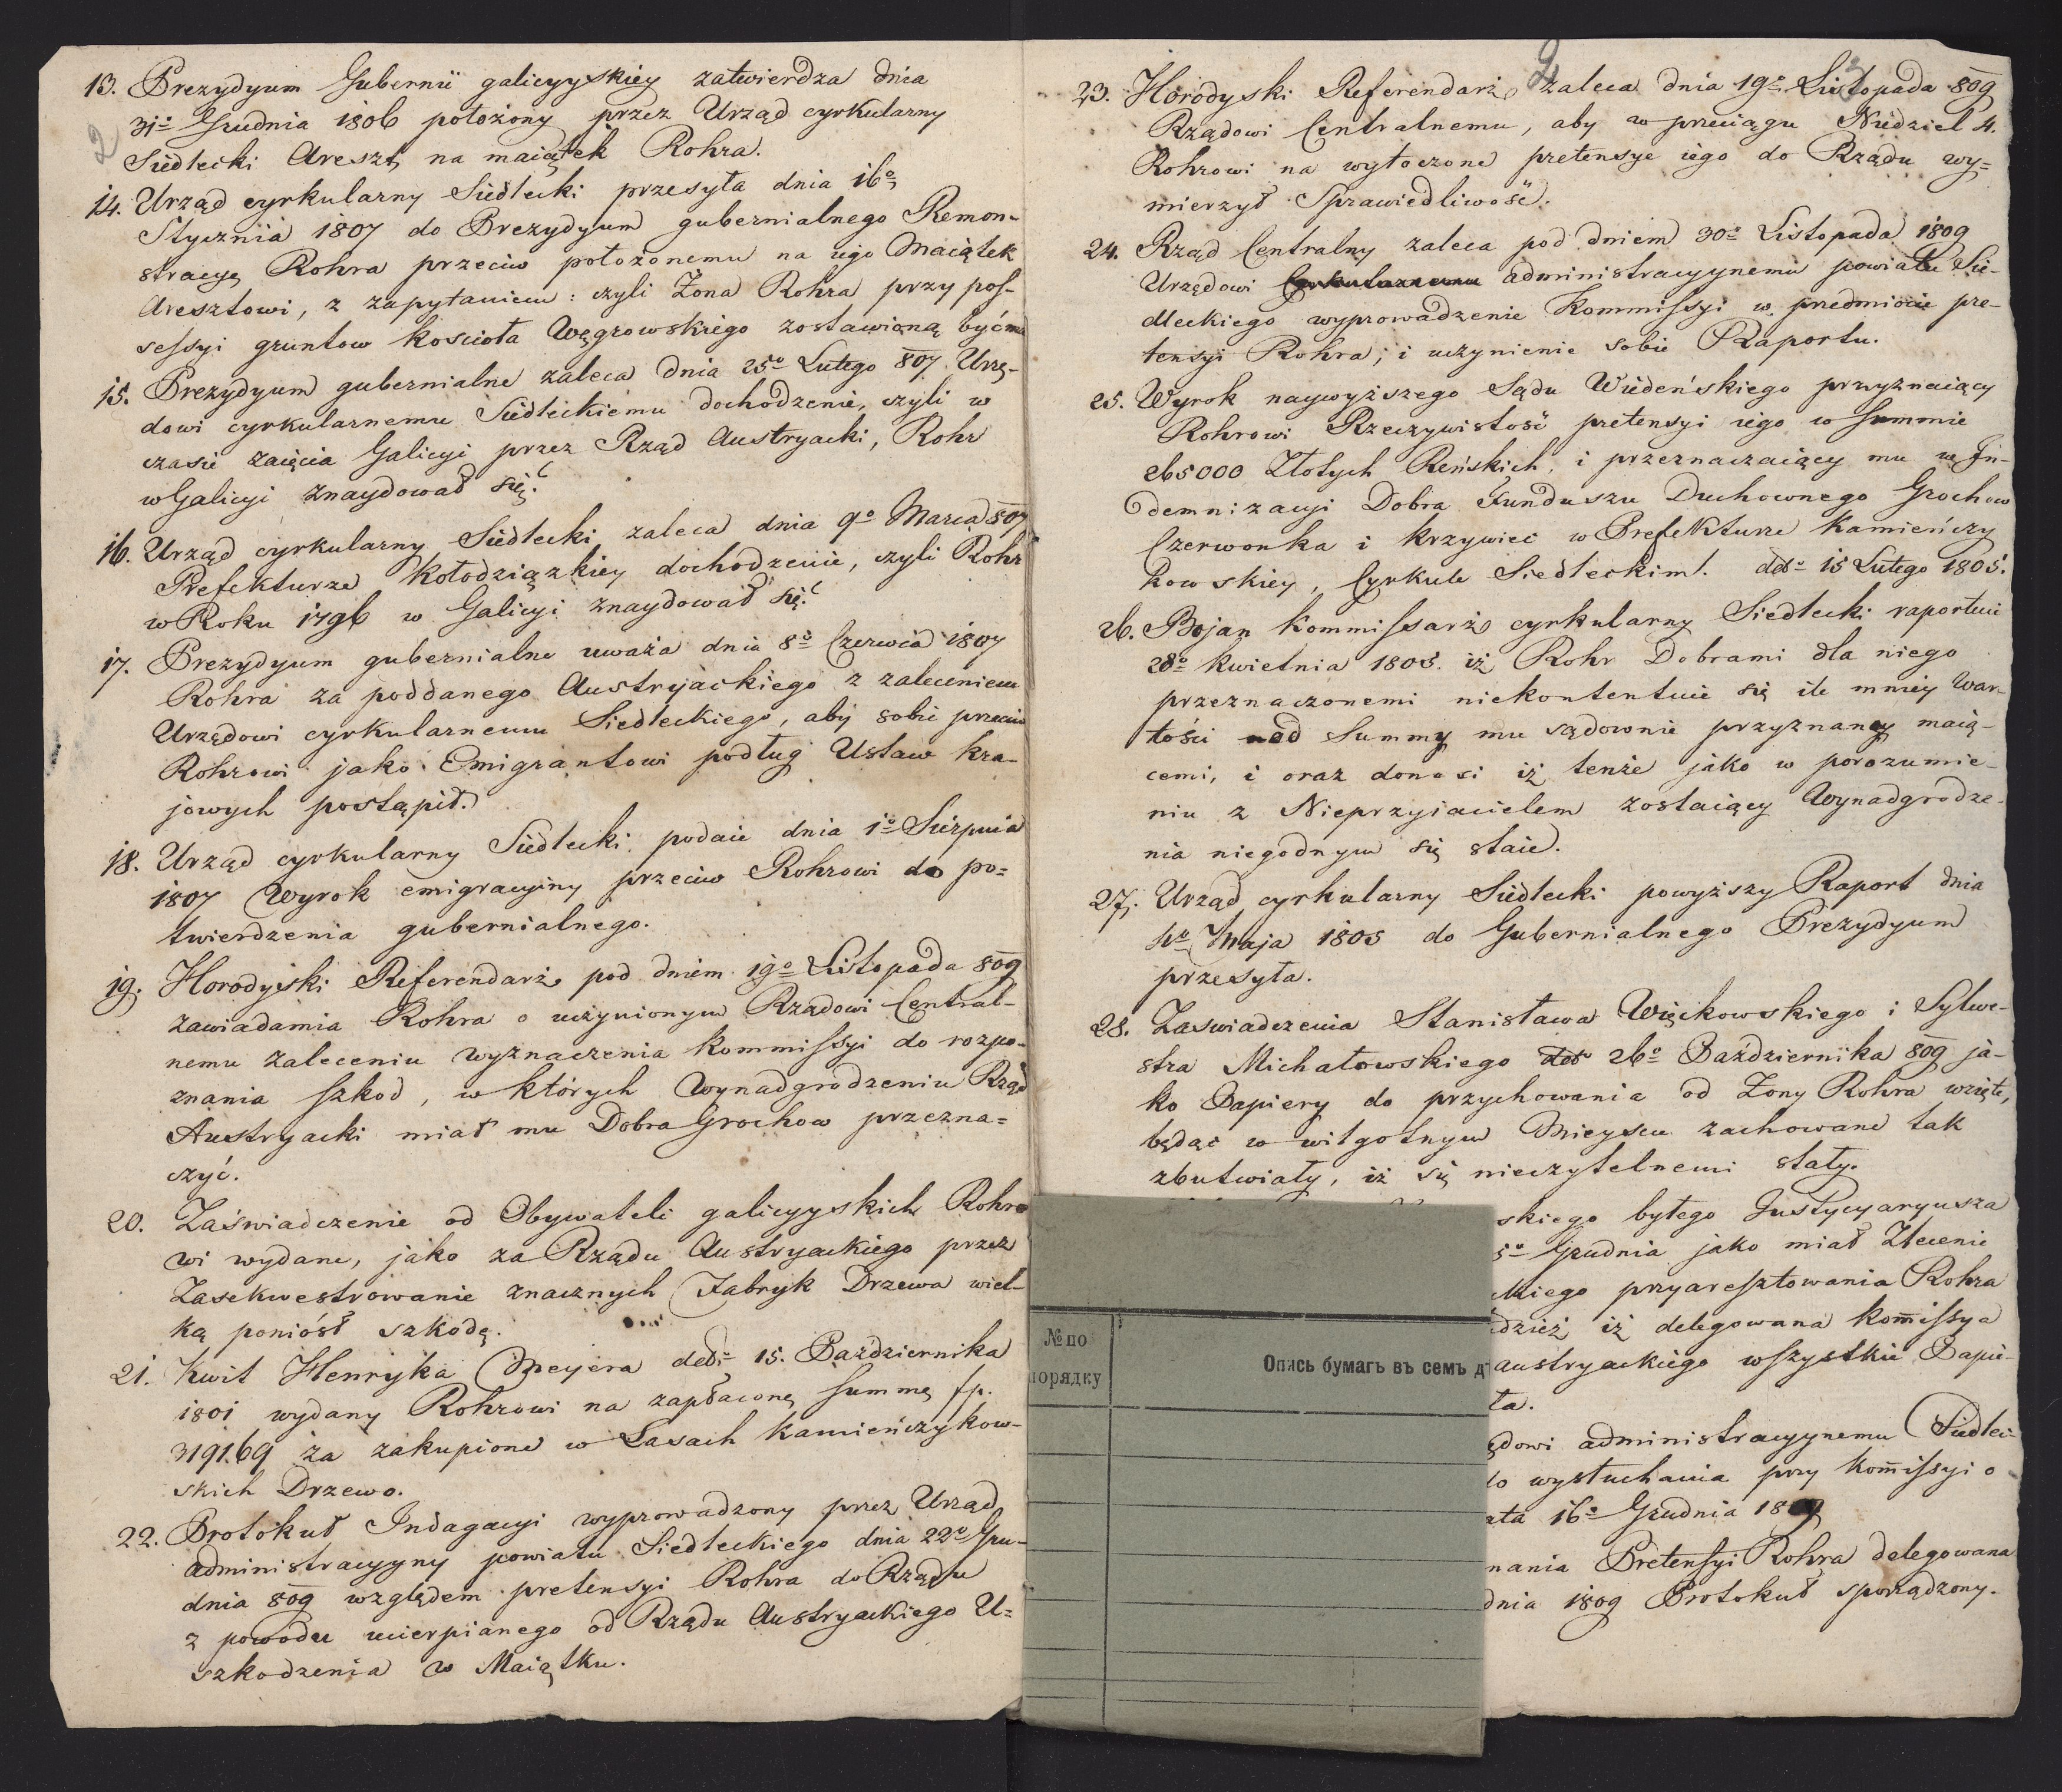 13. Prezydyum Gubernii galicyyskiey zatwierdza dnia
31º Grudnia 1806 położony przez Urząd cyrkularny
Siedlecki Areszt na maiątek Rohra.
14. Urząd cyrkularny Siedlecki przesyła dnia 16º
Stycznia 1807 do Prezydyum gubernialnego Remon-
stracyę Rohra przeciw położonemu na iego Maiątek
Aresztowi, z zapytaniem: czyli Żona Rohra przy pos-
sessyi gruntow koscioła Węgrowskiego zostawioną być ma
15. Prezydyum gubernialne zaleca dnia 25º Lutego 807 Urzę-
dowi cyrkularnemu Siedleckiemu dochodzenie, czyli w
czasie zaięcia Galicyi przez Rząd Austryacki, Rohr
w Galicyi znaydował się.
16. Urząd cyrkularny Siedlecki zaleca dnia 9º Marca 807
Prefekturze Kołodziązkiey dochodzenie, czyli Rohr
w Roku 1796 w Galicyi znaydował się.
17. Prezydyum gubernialne uważa dnia 8º Czerwca 1807
Rohra za poddanego Austryackiego z zaleceniem
Urzędowi cyrkularnemu Siedleckiego, aby sobie przeciw
Rohrowi jako Emigrantowi podług Ustaw kra-
jowych postąpił.
18. Urząd cyrkularny Siedlecki podaie dnia 1º Sierpnia
1807 Wyrok emigracyiny przeciw Rohrowi do po=
twierdzenia gubernialnego.
19. Horodyski Referendarz pod dniem 19º Listopada 809
zawiadamia Rohra o uczynionym Rządowi Central-
nemu zaleceniu wyznaczenia Kommissyi do rozpo-
znania szkod, w których Wynadgrodzeniu Rząd
Austryacki miał mu Dobra Grochow przezna=
czyć.
20. Zaświadczenie od Obywateli galicyyskich Rohro
wi wydane, jako za Rządu Austryackiego przez
Zasekwestrowanie znacznych Fabryk Drzewa wiel-
ką poniósł szkodę.
21. Kwit Henryka Meyera ddº 15. Października
1801 wydany Rohrowi na zapłaconą summę fp.
319169 za zakupione w Lasach Kamieńczykow-
skich Drzewo.
22. Protokuł Indagacyi wyprowadzony przez Urząd
administracyyny powiatu Siedleckiego dnia 22º Gru-
dnia 809 względem pretensyi Rohra do Rządu
z powodu ucierpianego od Rządu Austryackiego U=
szkodzenia w Maiątku.
23. Horodyski Referendarz zaleca dnia 19º Listopada 809
Rządowi Centralnemu, aby w przeciągu Niedziel 4.
Rohrowi na wytoczone pretensye iego do Rządu wy=
mierzył Sprawiedliwość.
24. Rząd Centralny zaleca pod dniem 30º Listopada 1809
Urzędowi Cyrkularnemu administracyynemu powiatu Sie-
dleckiego wyprowadzenie Kommissyi w przedmiocie pre-
tensyi Rohra, i uczynienie sobie Raportu.
25. Wyrok naywyższego Sądu Wiedeńskiego przyznaiący
Rohrowi Rzeczywistość pretensyi iego w summie
265000 Złotych Reńskich, i przeznaczaiący mu w In-
demnizacyi Dobra Funduszu Duchownego Grochow
Czerwonka i Krzywiec w Prefekturze Kamieńczy
kowskiey, Cyrkule Siedleckim. ddº 15 Lutego 1805.
26. Bojan Kommissarz cyrkularny Siedlecki raportuie
28º Kwietnia 1805. iż Rohr Dobrami dla niego
przeznaczonemi niekontentuie się ile mniey War-
tości nad Summy mu sądownie przyznaney maią-
cemi, i oraz donosi iż tenże jako w porozumie-
niu z Nieprzyiacielem zostaiący Wynadgrodze-
nia niegodnym się staie.
27. Urząd cyrkularny Siedlecki powyższy Raport dnia
Maja 1805 do Gubernialnego Prezydyum
przesyła.
28. Zaswiadczenia Stanisława Więckowskiego i Sylwe-
stra Michałowskiego ddº 26º Października 809 ja-
ko Papiery do przychowania od Żony Rohra wzięte,
będąc w wilgotnym Mieyscu zachowane tak
zbutwiały, iż się nieczytelnemi stały.
skiego byłego Justycyaryusza
5º Grudnia jako miał Zlecenie
ckiego przyaresztowania Rohra
dzież iż delegowana Kom̄issya
austryackiego wszystkie Papie-
ła.
ędowi administracyynemu Siedlec-
do wysłuchania przy Kom̄issyi o
ata 16º Grudnia 1809
nania Pretensyi Rohra delegowana
dnia 1809 Protokuł sporządzony.
№ по
порядку
Опись бумагъ въ семъ д